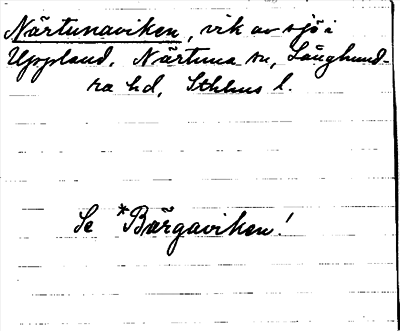 Närtunaviken, vik av sjö i
Uppland, Närtuna sn, Långhund-
ra hd, Sthlms l.
Se *Bärgaviken!